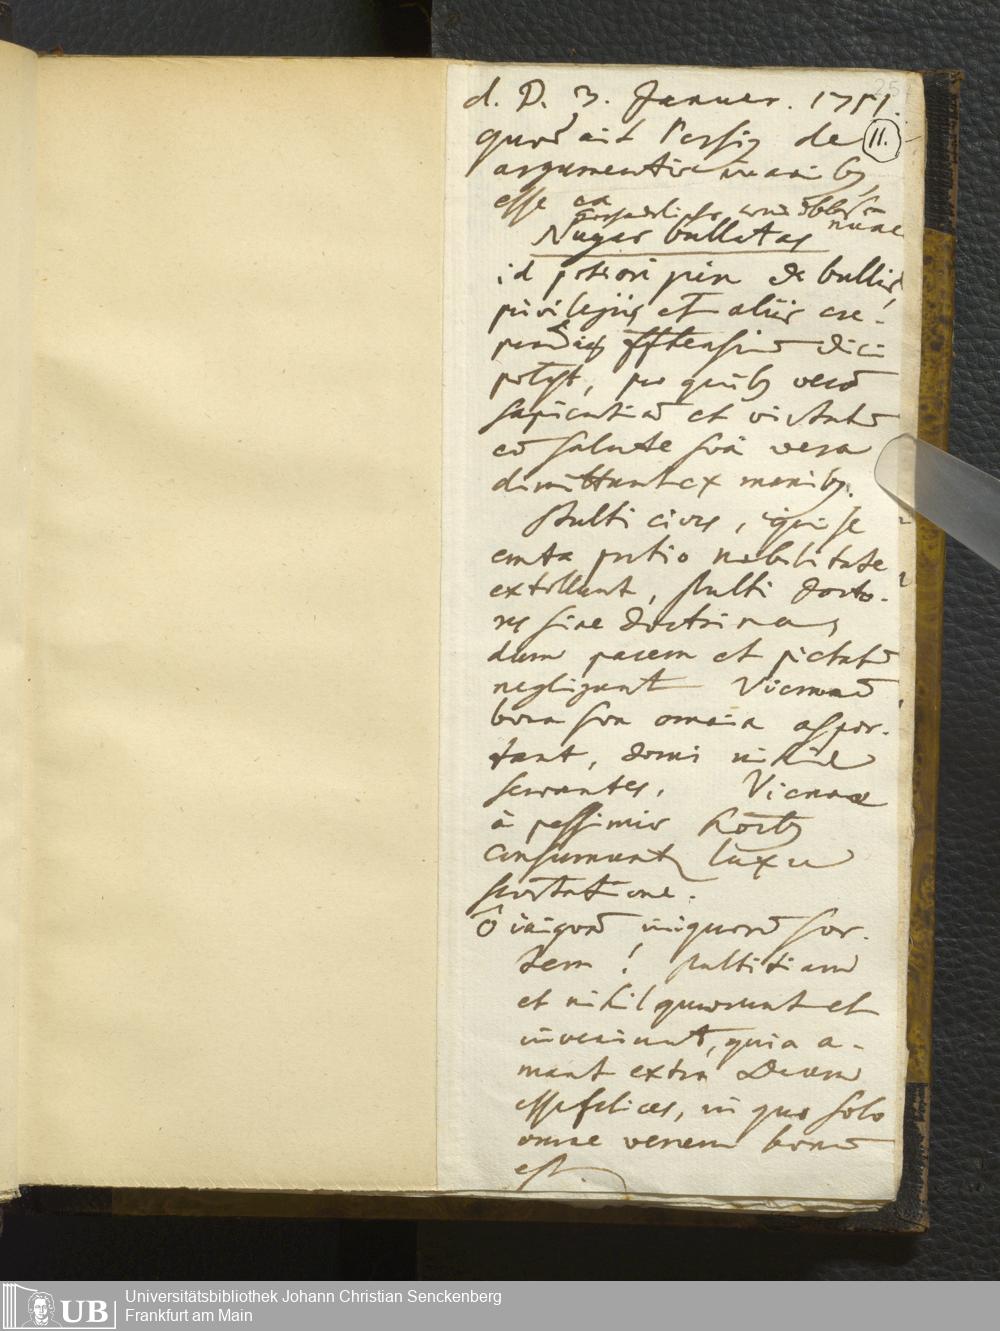 25
d. D. 3. Januar. 1751.
quod ait Persi9 de
11.
argumentis inanib9
esse ea
nunc
Nugas bullatas
id potiori jure de bullis,
privilegiis et aliis cre-
pundiis dici
potest, pro quib9 verā
sapientiā et virtutē
cū salute suā vera
dimittunt ex manib9.
Stulti cives, qui se
emta pretio nobilitate
extollunt, stulti docto-
res sine doctrina,
dum pacem et pietatē
negligunt Viennā
bona sua omnia aspor-
tant, domi nihil
servantes, Viennae
à pessimis
consumunt luxu
scortatione.
O iniquā iniquorū sor-
tem! stultitiam
et nihil quaerunt et
inveniunt, quia a-
mant extra Deum
esse felices, in quo solo
omne verum bonū
est.
UB
Universitätsbibliothek Johann Christian Senckenberg
Frankfurt am Main